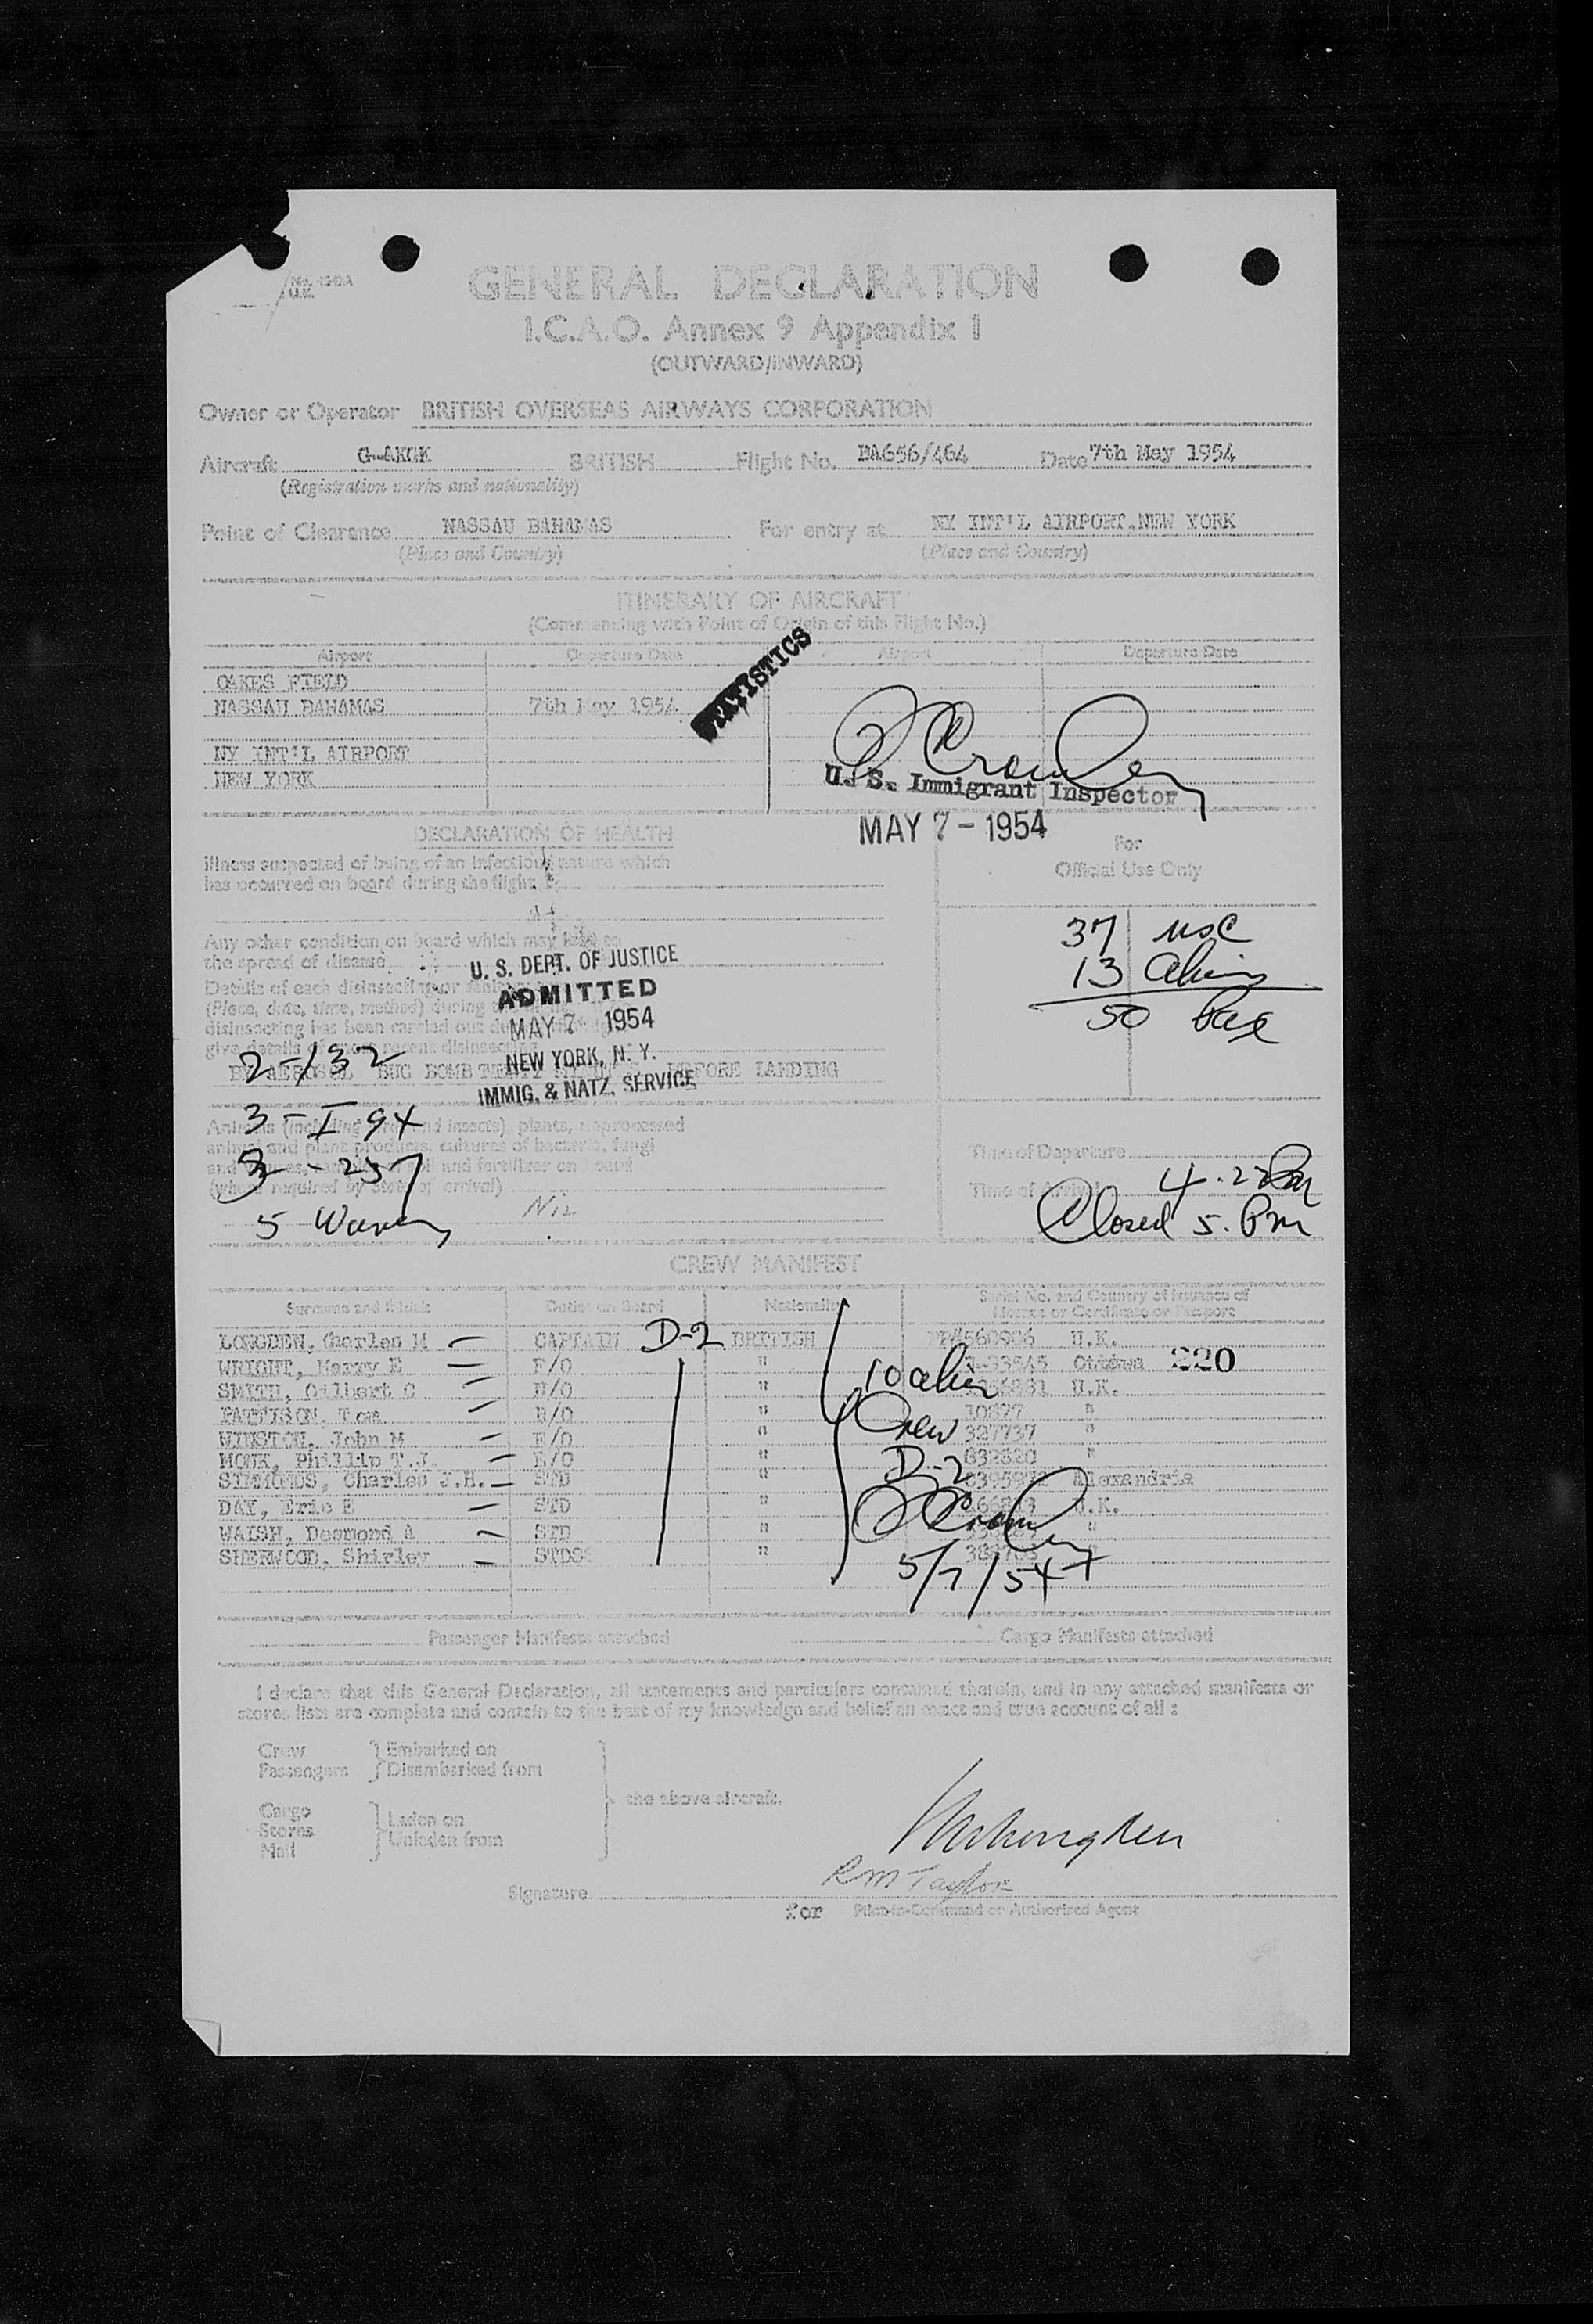 GENERAL DECLARATION
I.C.A.O. Annex 9 Appendix 1
(OUTWARD/INWARD)
Owner or Operator BRITISH OVERSEAS AIRWAYS CORPORATION
Aircraft BRITISH Flight No. BA656/464 Date 7th May 1954
(Registration marks and nationality)
Point of Clearance NASSAU BAHAMAS For entry at NY INT'L AIRPORT, NEW YORK
(Place and Country) (Place and Country)
ITINERARY OF AIRCRAFT
(Commencing with Point of Origin of this Flight No.)
Airport Departure Date Airport Departure Date
STATISTICS
OAKES FIELD
NASSAU BAHAMAS 7th May 1954
NY INT'L AIRPORT
NEW YORK
U. S. Immigrant Inspector
MAY 7 - 1954
DECLARATION OF HEALTH
For
Official Use Only
Illness suspected of being of an infectious nature which
has occurred on board during the flight
37 USC
13 Aliens
50 Pax
Any other condition on board which may lead to
the spread of disease
U. S. DEPT. OF JUSTICE
ADMITTED
MAY 7 1954
NEW YORK, N. Y.
IMMIG. & NATZ. SERVICE
Details of each disinsecting or
(Place, date, time, method) during
disinsecting has been carried out
give details of most recent disinsecting
2-132
AEROSOL BUG BOMB BEFORE LANDING
3-I 94
Animals (including and insects), plants, unprocessed
animal and plant products, cultures of bacteria, fungi
and and fertilizer on board
(where required by State of arrival)
- 257
5
Nil
Time of Departure
Time of Arrival 4.22 PM
Closed 5. Pm
CREW MANIFEST
Surname and Initials Duties on Board Nationality Serial No. and Country of Issuance of
Licence or Certificate or Passport
LONGDEN, Charles M CAPTAIN D-2 BRITISH PP#560906 U.K.
WRIGHT, Harry E F/O " Ottawa 220
SMITH, Gilbert C N/O " U.K.
PATTISON, Tom R/O " 30877 "
WINSTON, John M E/O " 327737 "
MONK, Phillip T.J. E/O " 832820 "
SIMMONDS, Charles J.H. STD " Alexandria
DAY, Eric E STD " U.K.
WALSH, Desmond A STD " "
SHERWOOD, Shirley STDSS "
10 alien
Crew
D-2
5/7/54
Passenger Manifests attached Cargo Manifests attached
I declare that this General Declaration, all statements and particulars contained therein, and in any attached manifests or
stores lists are complete and contain to the best of my knowledge and belief an exact and true account of all :
Crew Embarked on
Passengers Disembarked from
the above aircraft.
Cargo
Stores Laden on
Mail Unladen from
R M Taylor
Signature
for Pilot-in-Command or Authorised Agent